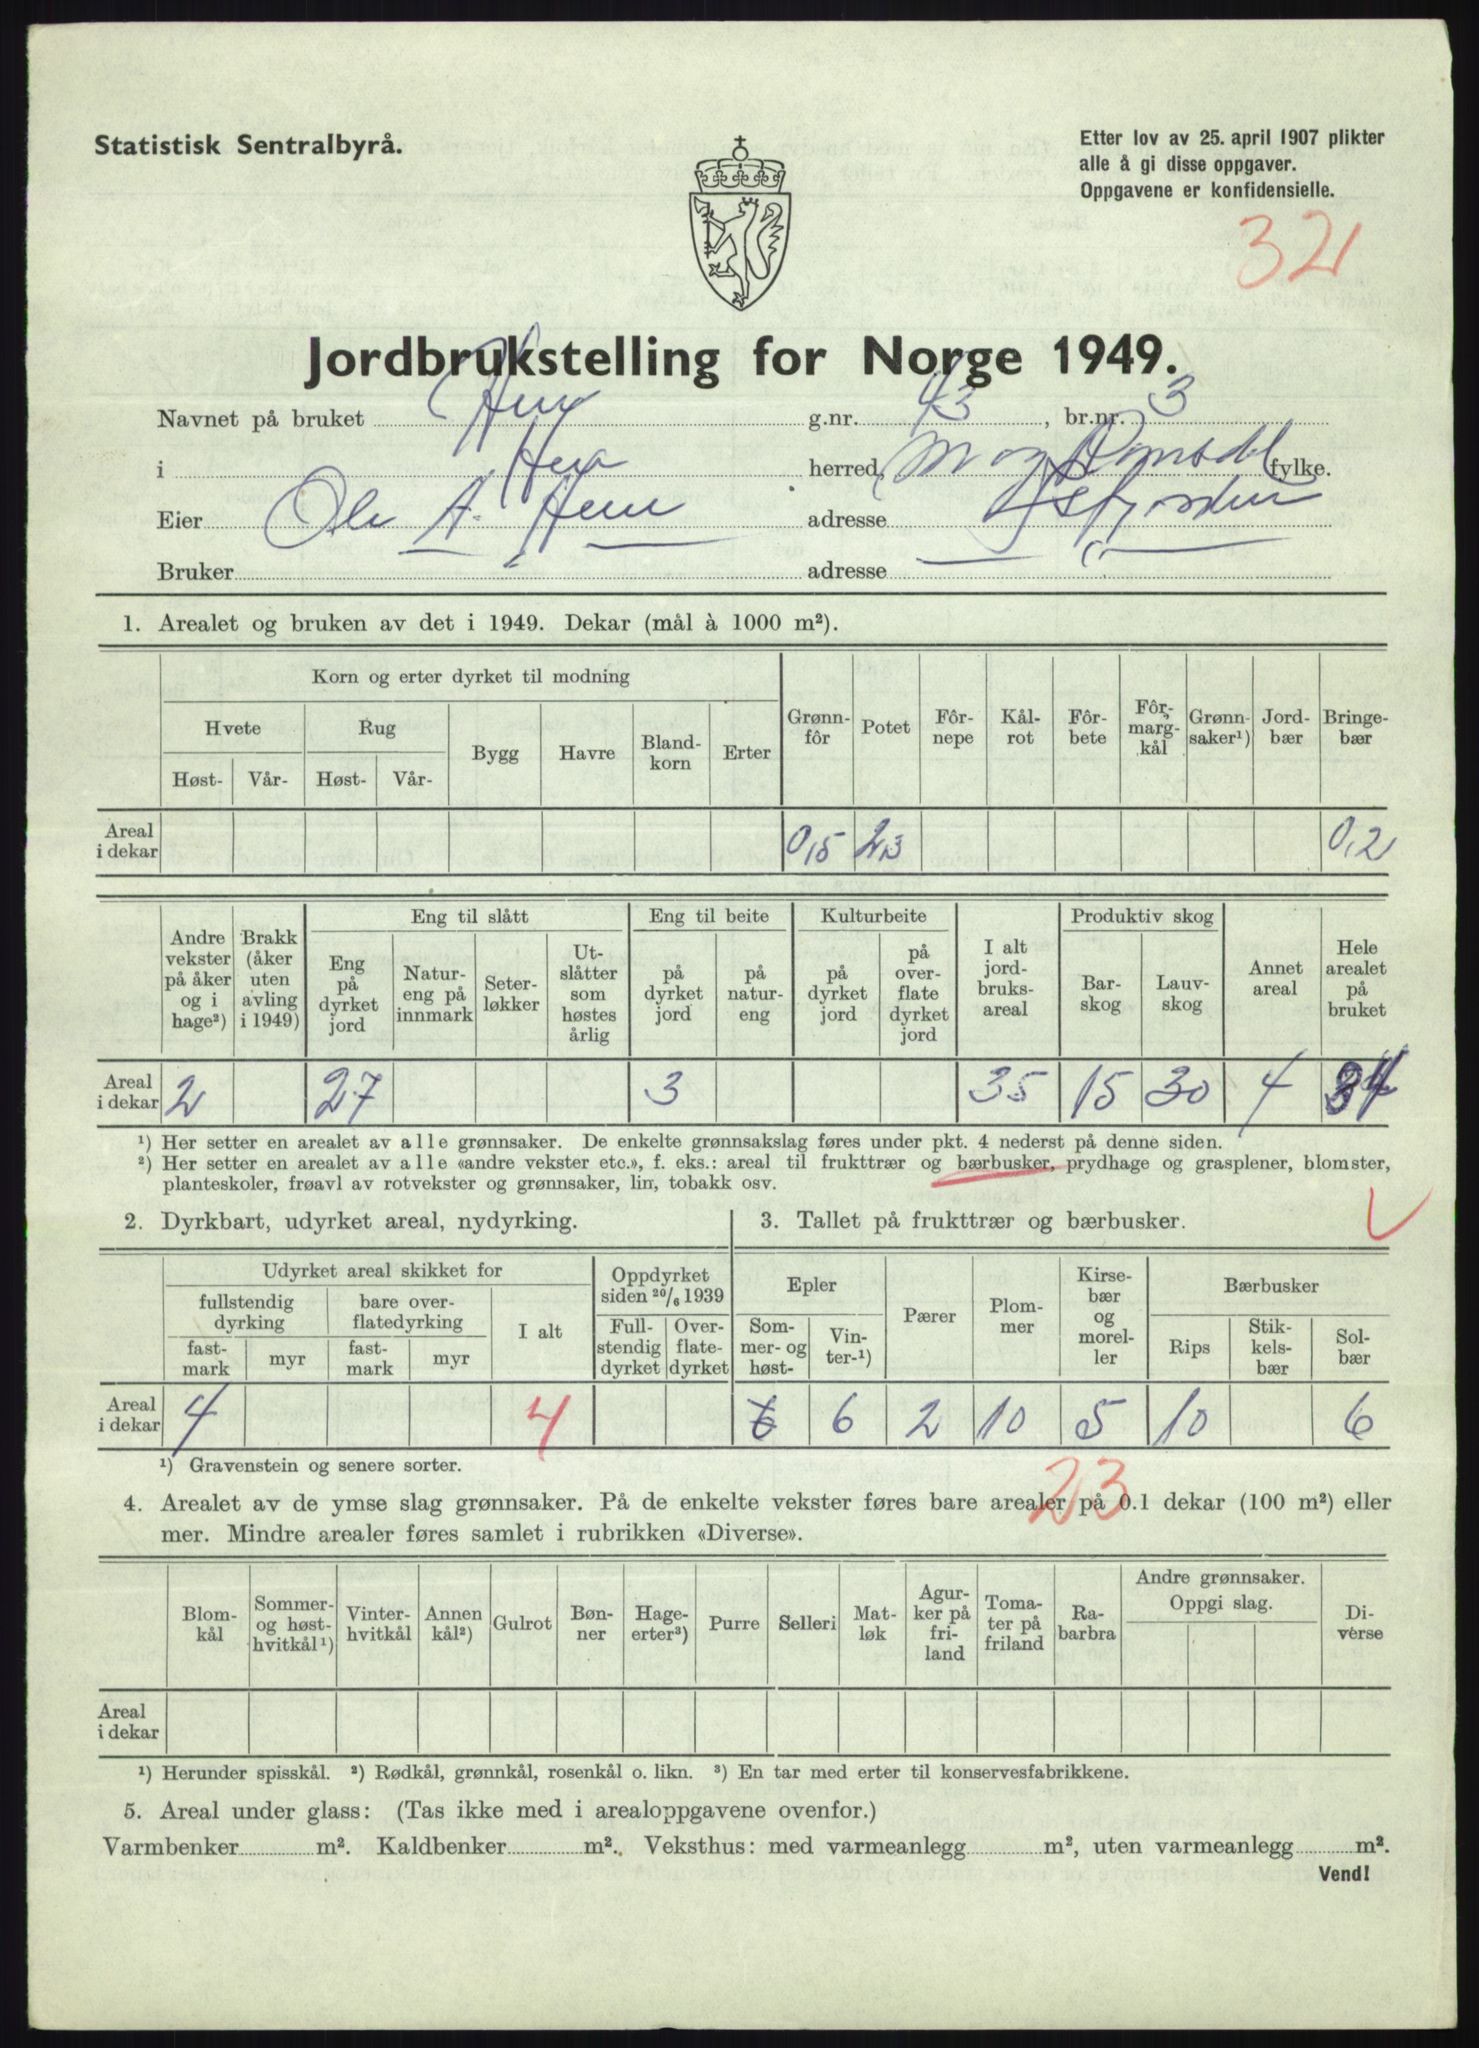 Statistisk Sentralbyrå.
Etter lov av 25. april 1907 plikter
alle å gi disse oppgaver.
Oppgavene er konfidensielle.
32
Jordbrukstelling for Norge 1949.
Navnet på bruket Hen g.nr. 43, br.nr. 3
i Hen herred, M og Romsdal fylke.
Eier Ole A. Hen adresse Isfjorden
Bruker adresse
1. Arealet og bruken av det i 1949. Dekar (mål à 1000 m²).
Korn og erter dyrket til modning
Hvete Rug Bygg Havre Bland-korn Erter Grønn-fôr Potet Fôr-nepe Kål-rot Fôr-bete Fôr-marg-kål Grønn-saker¹) Jord-bær Bringe-bær
Høst- Vår- Høst- Vår-
Areal i dekar 0,5 2,3 0,2
Eng til slått Eng til beite Kulturbeite Produktiv skog
Andre vekster på åker og i hage²) Brakk (åker uten avling i 1949) Eng på dyrket jord Natur-eng på innmark Seter-løkker Ut-slåtter som høstes årlig på dyrket jord på natur-eng på dyrket jord på over-flate dyrket jord I alt jord-bruks-areal Bar-skog Lauv-skog Annet areal Hele arealet på bruket
Areal i dekar 2 27 3 35 15 30 4 84
¹) Her setter en arealet av alle grønnsaker. De enkelte grønnsakslag føres under pkt. 4 nederst på denne siden.
²) Her setter en arealet av alle «andre vekster etc.», f. eks.: areal til frukttrær og bærbusker, prydhage og grasplener, blomster,
planteskoler, frøavl av rotvekster og grønnsaker, lin, tobakk osv.
2. Dyrkbart, udyrket areal, nydyrking.
Udyrket areal skikket for Oppdyrket siden 20/6 1939
fullstendig dyrking bare over-flatedyrking I alt Full-stendig dyrket Over-flate-dyrket
fast-mark myr fast-mark myr
Areal i dekar 4 4
3. Tallet på frukttrær og bærbusker.
Epler Pærer Plom-mer Kirse-bær og morel-ler Bærbusker
Som-mer- og høst- Vin-ter-¹) Rips Stik-kels-bær Sol-bær
6 6 2 10 5 10 6
¹) Gravenstein og senere sorter.
23
4. Arealet av de ymse slag grønnsaker. På de enkelte vekster føres bare arealer på 0.1 dekar (100 m²) eller
mer. Mindre arealer føres samlet i rubrikken «Diverse».
Blom-kål Sommer- og høst-hvitkål¹) Vinter-hvitkål Annen kål²) Gulrot Bøn-ner Hage-erter³) Purre Selleri Mat-løk Agur-ker på fri-land Toma-ter på friland Ra-barbra Andre grønnsaker. Oppgi slag. Di-verse
Areal i dekar
¹) Herunder spisskål. ²) Rødkål, grønnkål, rosenkål o. likn. ³) En tar med erter til konservesfabrikkene.
5. Areal under glass: (Tas ikke med i arealoppgavene ovenfor.)
Varmbenker m². Kaldbenker m². Veksthus: med varmeanlegg m², uten varmeanlegg m².
Vend!